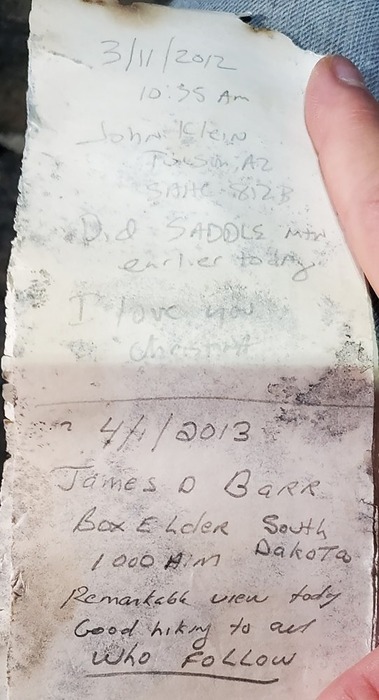 3/11/2012
10:35 Am
John Klein
Tucson, AZ
SAHC
Did SADDLE mtn
earlier today
I love you
4/1/2013
James D Barr
Box Elder South
Dakota
1000 Aim
Remarkable view today
Good hiking to all
Who Follow